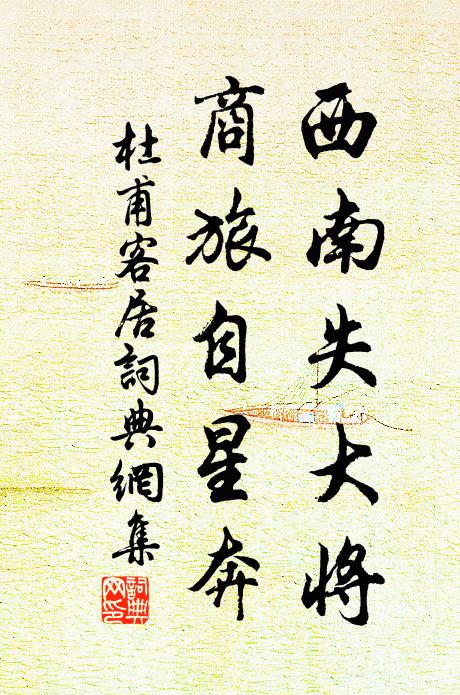 西南失大將
商旅自星奔
杜甫客居詞典網集
詞典网印